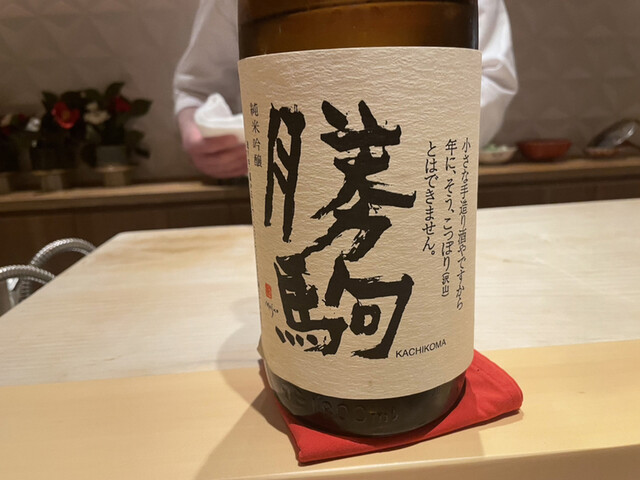 小さな手造り酒やですから
年に、そう、こっぽり(沢山)
とはできません。
勝駒
純米吟醸
KACHIKOMA
1800ml